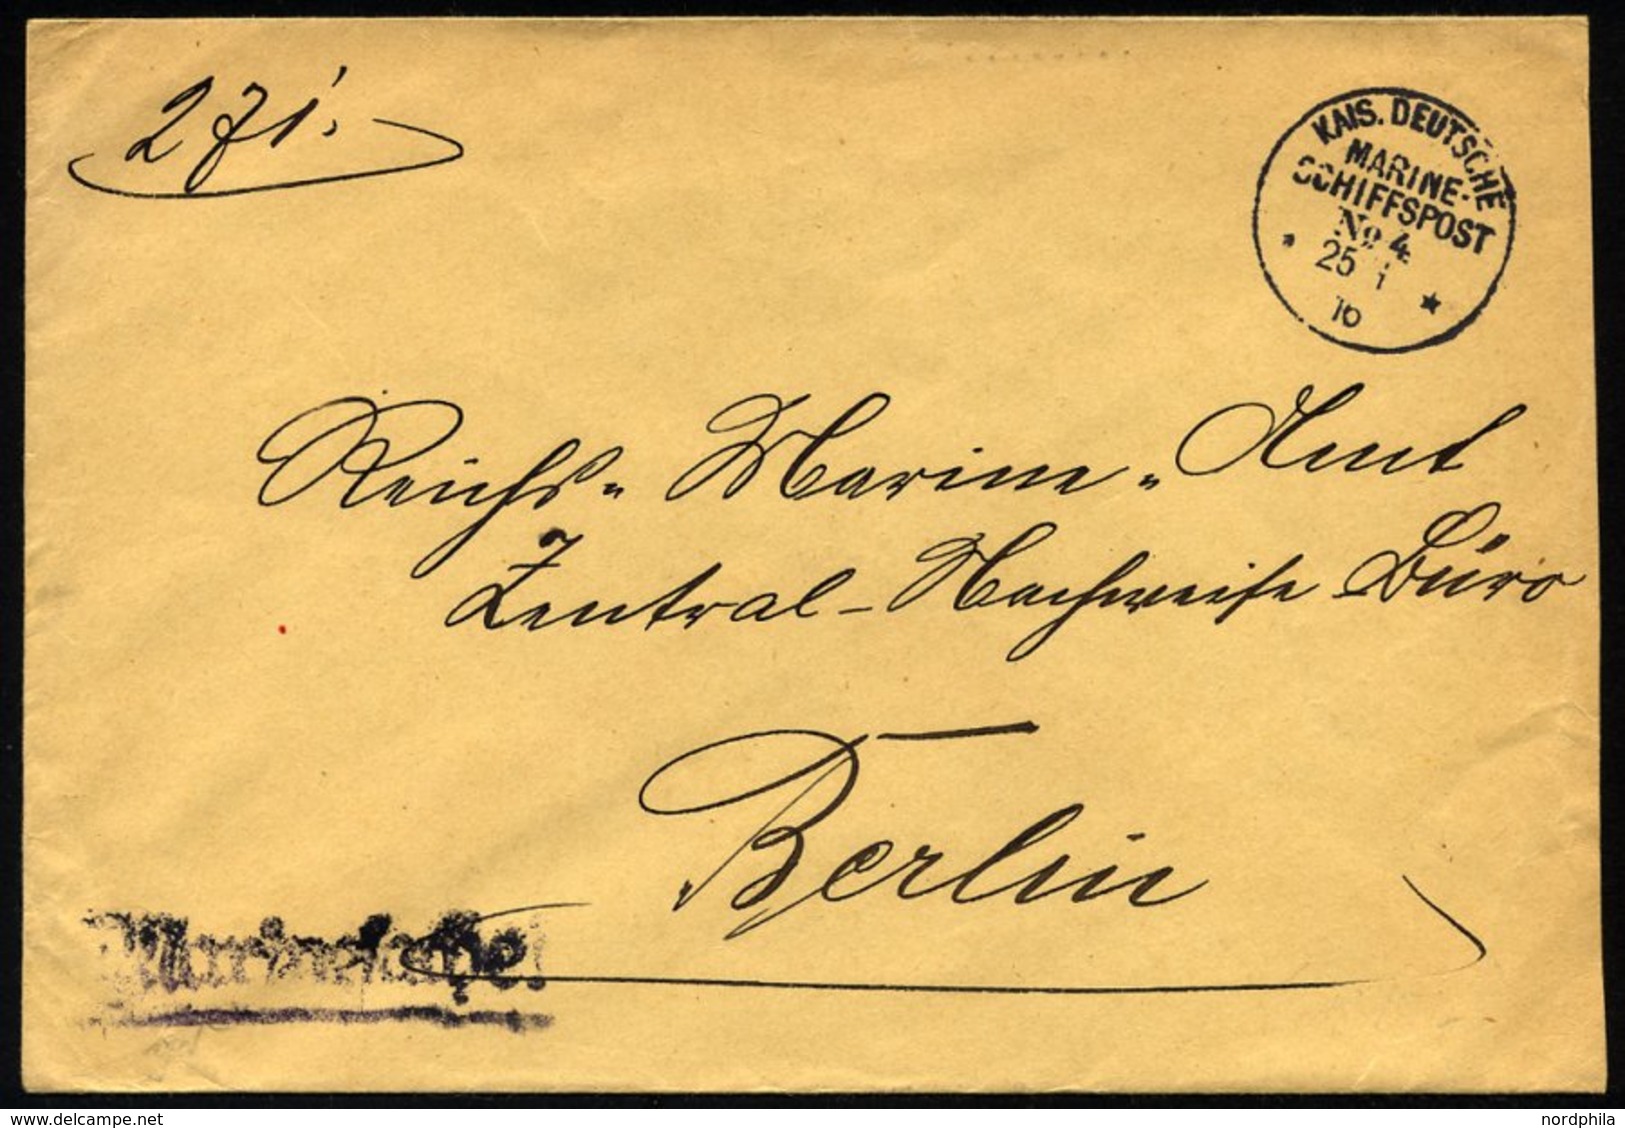 271.
KAIS. DEUTSCHE
MARINE-
SCHIFFSPOST
No 4
25
10
Reichs-Marine-Amt
Zentral-Nachweise Büro
Berlin
Marinesache!
delcampe.net
nordphila